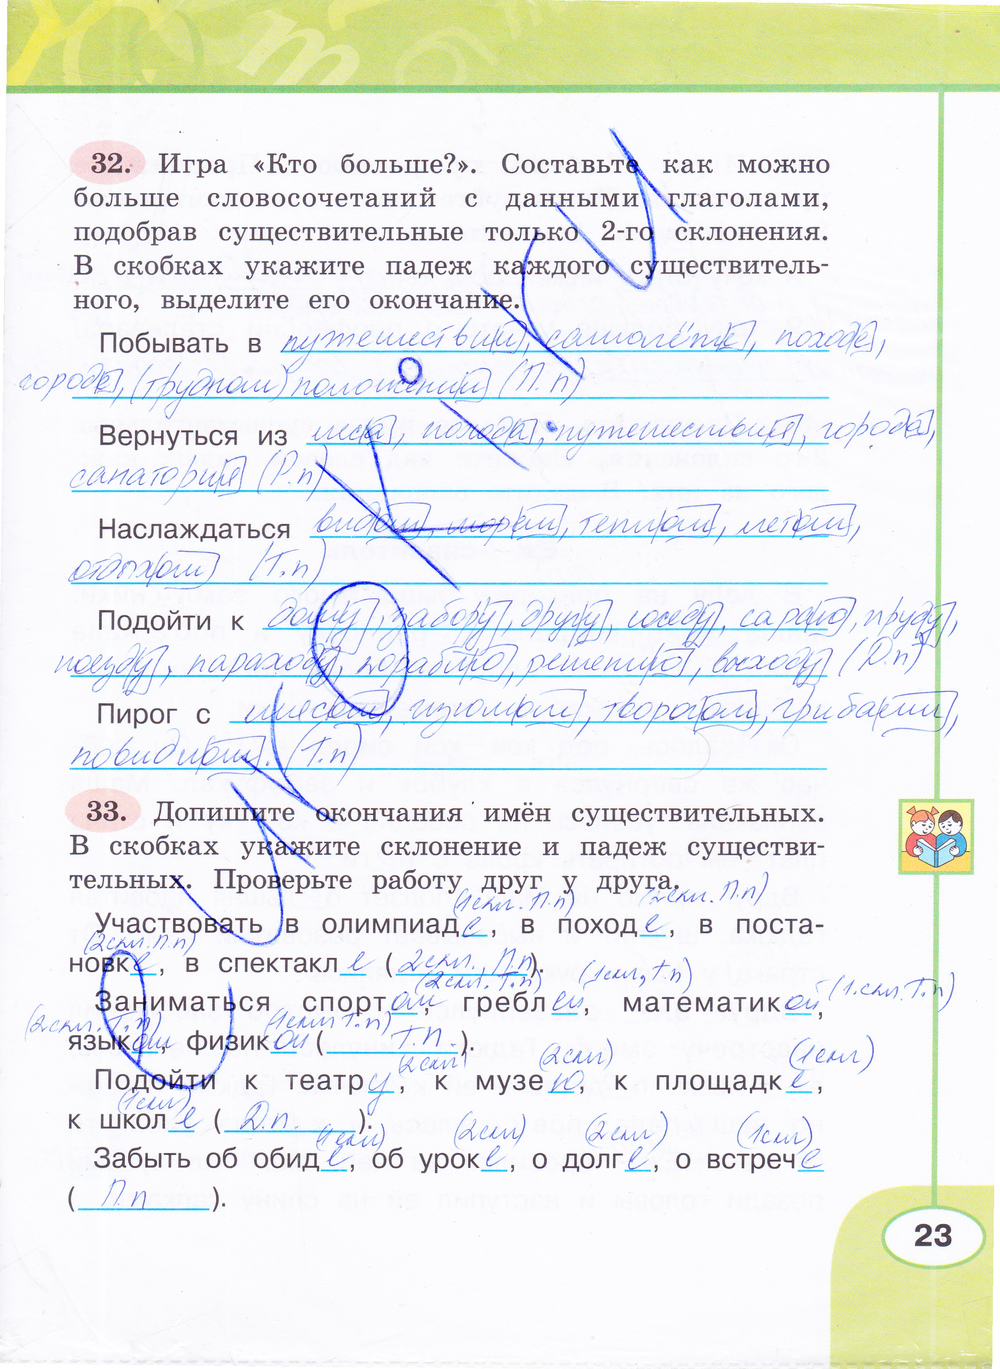 32. Игра «Кто больше?». Составьте как можно
больше словосочетаний с данными глаголами,
подобрав существительные только 2-го склонения.
В скобках укажите падеж каждого существитель-
ного, выделите его окончание.
Побывать в путешествии, самолёте, походе,
городе, (трудном) положении (П.п)
Вернуться из леса, похода, путешествия, города,
санатория (Р.п)
Наслаждаться видом, морем, теплом, летом,
отдыхом (Т.п)
Подойти к дому, забору, другу, соседу, сараю, пруду,
поезду, пароходу, кораблю, решению, выходу (Д.п)
Пирог с мясом, изюмом, творогом, грибами,
повидлом. (Т.п)
33. Допишите окончания имён существительных.
В скобках укажите склонение и падеж существи-
тельных. Проверьте работу друг у друга.
(1скл. П.п) (2скл. П.п)
Участвовать в олимпиаде, в походе, в поста-
(2скл. П.п)
новке, в спектакле (2скл. П.п).
(2скл. Т.п) (1скл, Т.п)
Заниматься спортом, греблей, математикой, (1.скл. Т.п)
(2скл. Т.п) (1скл Т.п)
языком, физикой (Т.п.).
2скл (2скл) (1скл)
Подойти к театру, к музею, к площадке,
(1скл)
к школе (Д.п).
(1скл) (2скл) (2скл) (1скл)
Забыть об обиде, об уроке, о долге, о встрече
(П.п).
23